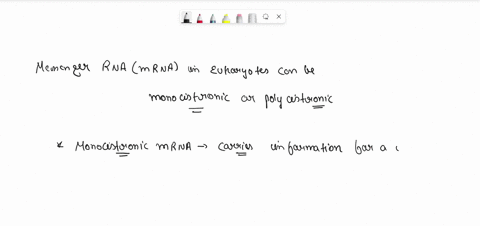 Messenger RNA (mRNA) in Eukaryotes can be
monocistronic or polycistronic
* Monocistronic mRNA → Carries information for a